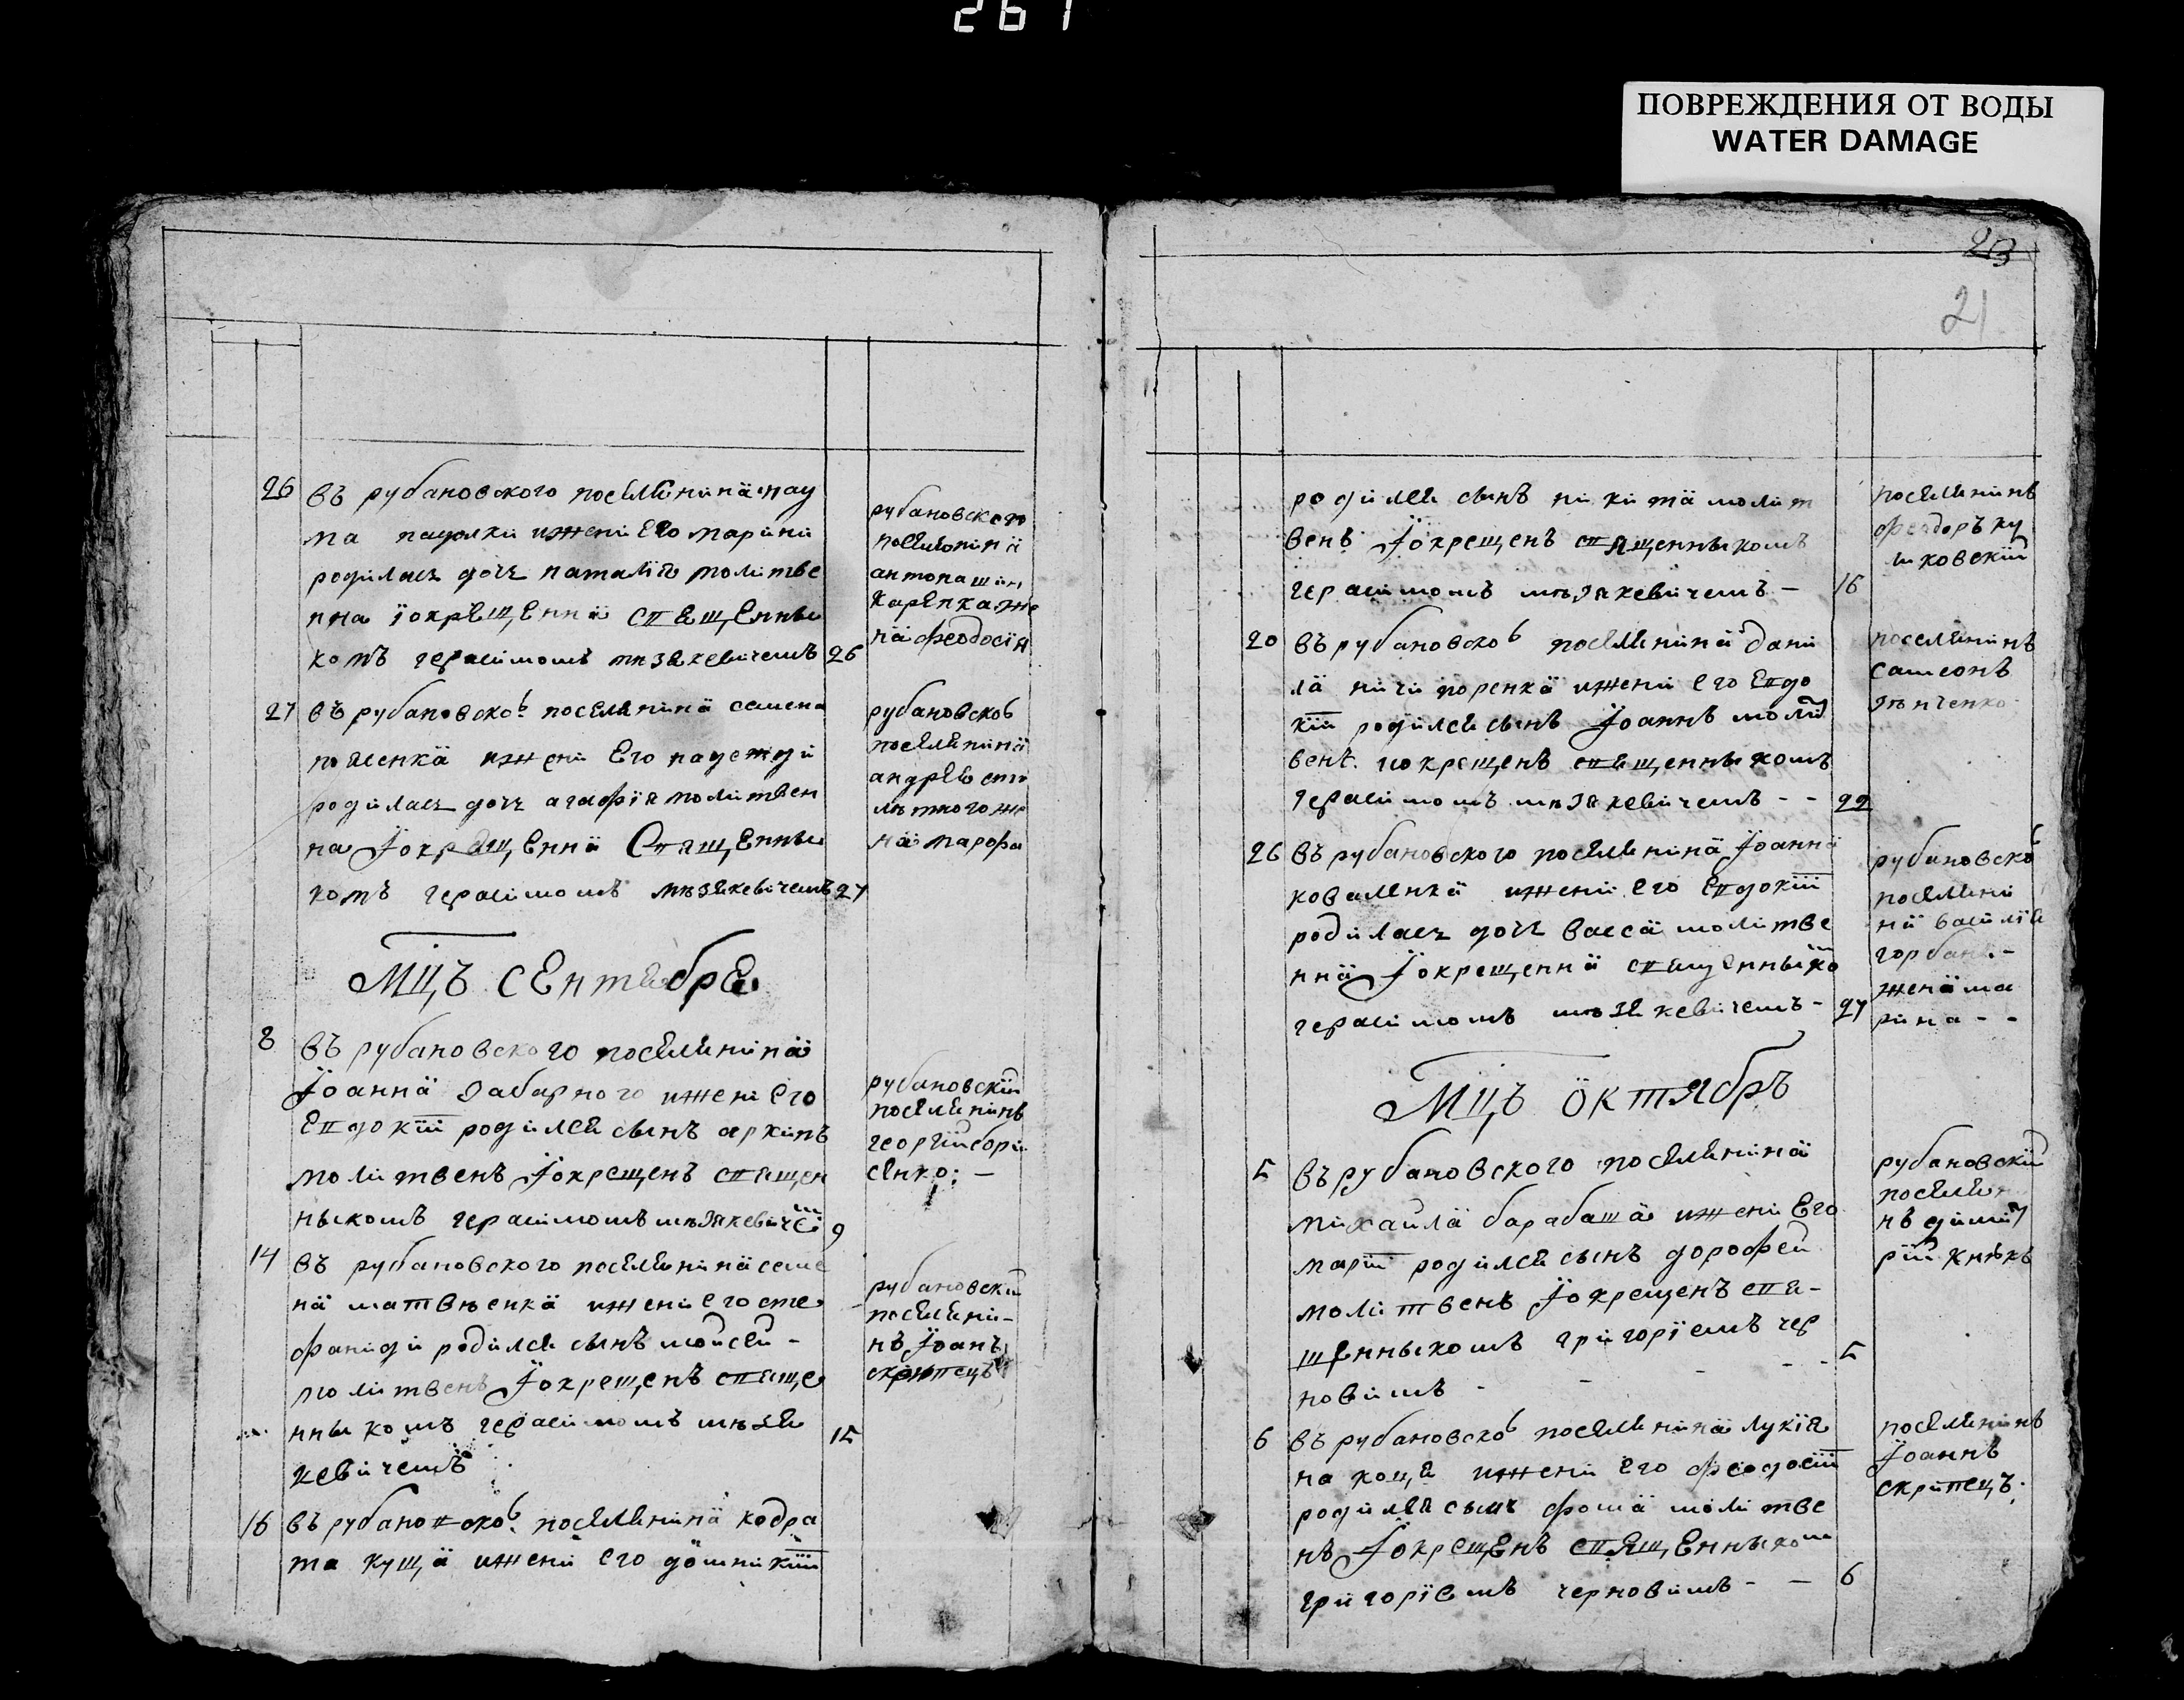 261
ПОВРЕЖДЕНИЯ ОТ ВОДЫ
WATER DAMAGE
26 въ рубановского поселенина нау
ма ижени Его марини
родилась дочь наталія молитве
нна їокрещенна священны
комъ герасимомъ мязякевичемъ 26
рубановского
поселенина
антона
жe
на феодосія
27 въ рубановског поселянина семена
ижени Его надежди
родилась дочь агафія молитвен
на їокрещенна Священны
комъ герасимомъ мязякевичемъ 27
рубановског
поселенина
андрея
же
на марфа
Мцъ сентебре
8 въ рубановского поселенина
їоанна забарного ижени его
Евдокїи родился сынъ архипъ
молитвенъ їокрещенъ священ
ныкомъ герасимомъ мязякевиче 9
рубановскїй
поселенинъ
георгїй бори
сенко: —
14 въ рубановского поселенина семе
на матвѣенка ижени его сте
фаниди родился сынъ мойсей -
молитвенъ їокрещенъ свяще
нныкомъ герасимомъ мязя
кевичемъ 15
рубановский
поселени-
нъ їоанъ
скрипецъ
16 въ рубановског: поселенина кодра
та куща ижени его домникїи
23
21
родился сынъ никита молит
венъ їокрещенъ священныкомъ
герасимомъ мязякевичемъ — 16
поселенинъ
феодоръ ку
шковскїй
20 въ рубановског поселенина дани
ла ничипоренка ижени его Евдо
кїи родился сынъ їоаннъ молит
венъ. иокрещенъ священныкомъ
герасимомъ мязякевичемъ - - 22
поселенинъ
самсонъ
26 въ рубановского поселенина їоанна
коваленка ижени его Евдокїи
родилась дочь васса молитве
нна їокрещенна священныко
герасимомъ мязякевичемъ - 27
рубановског
поселени
на василїя
горбаня -
жена ма
рина - -
Мцъ октябръ
5 въ рубановского поселенина
михаила барабаша ижени Его
марїи родился сынъ дорофей
молитвенъ їокрещенъ свя-
щенныкомъ григорїемъ чер
новимъ - - - - 5
рубановскїй
поселени
нъ димит
рїй
6 въ рубановског поселенина лукїя
на коця ижени его феодосїи
родился сынъ фома молитве
нъ їокрещенъ священныком
григорїемъ черновимъ - — 6
поселенинъ
їоаннъ
скрипецъ.